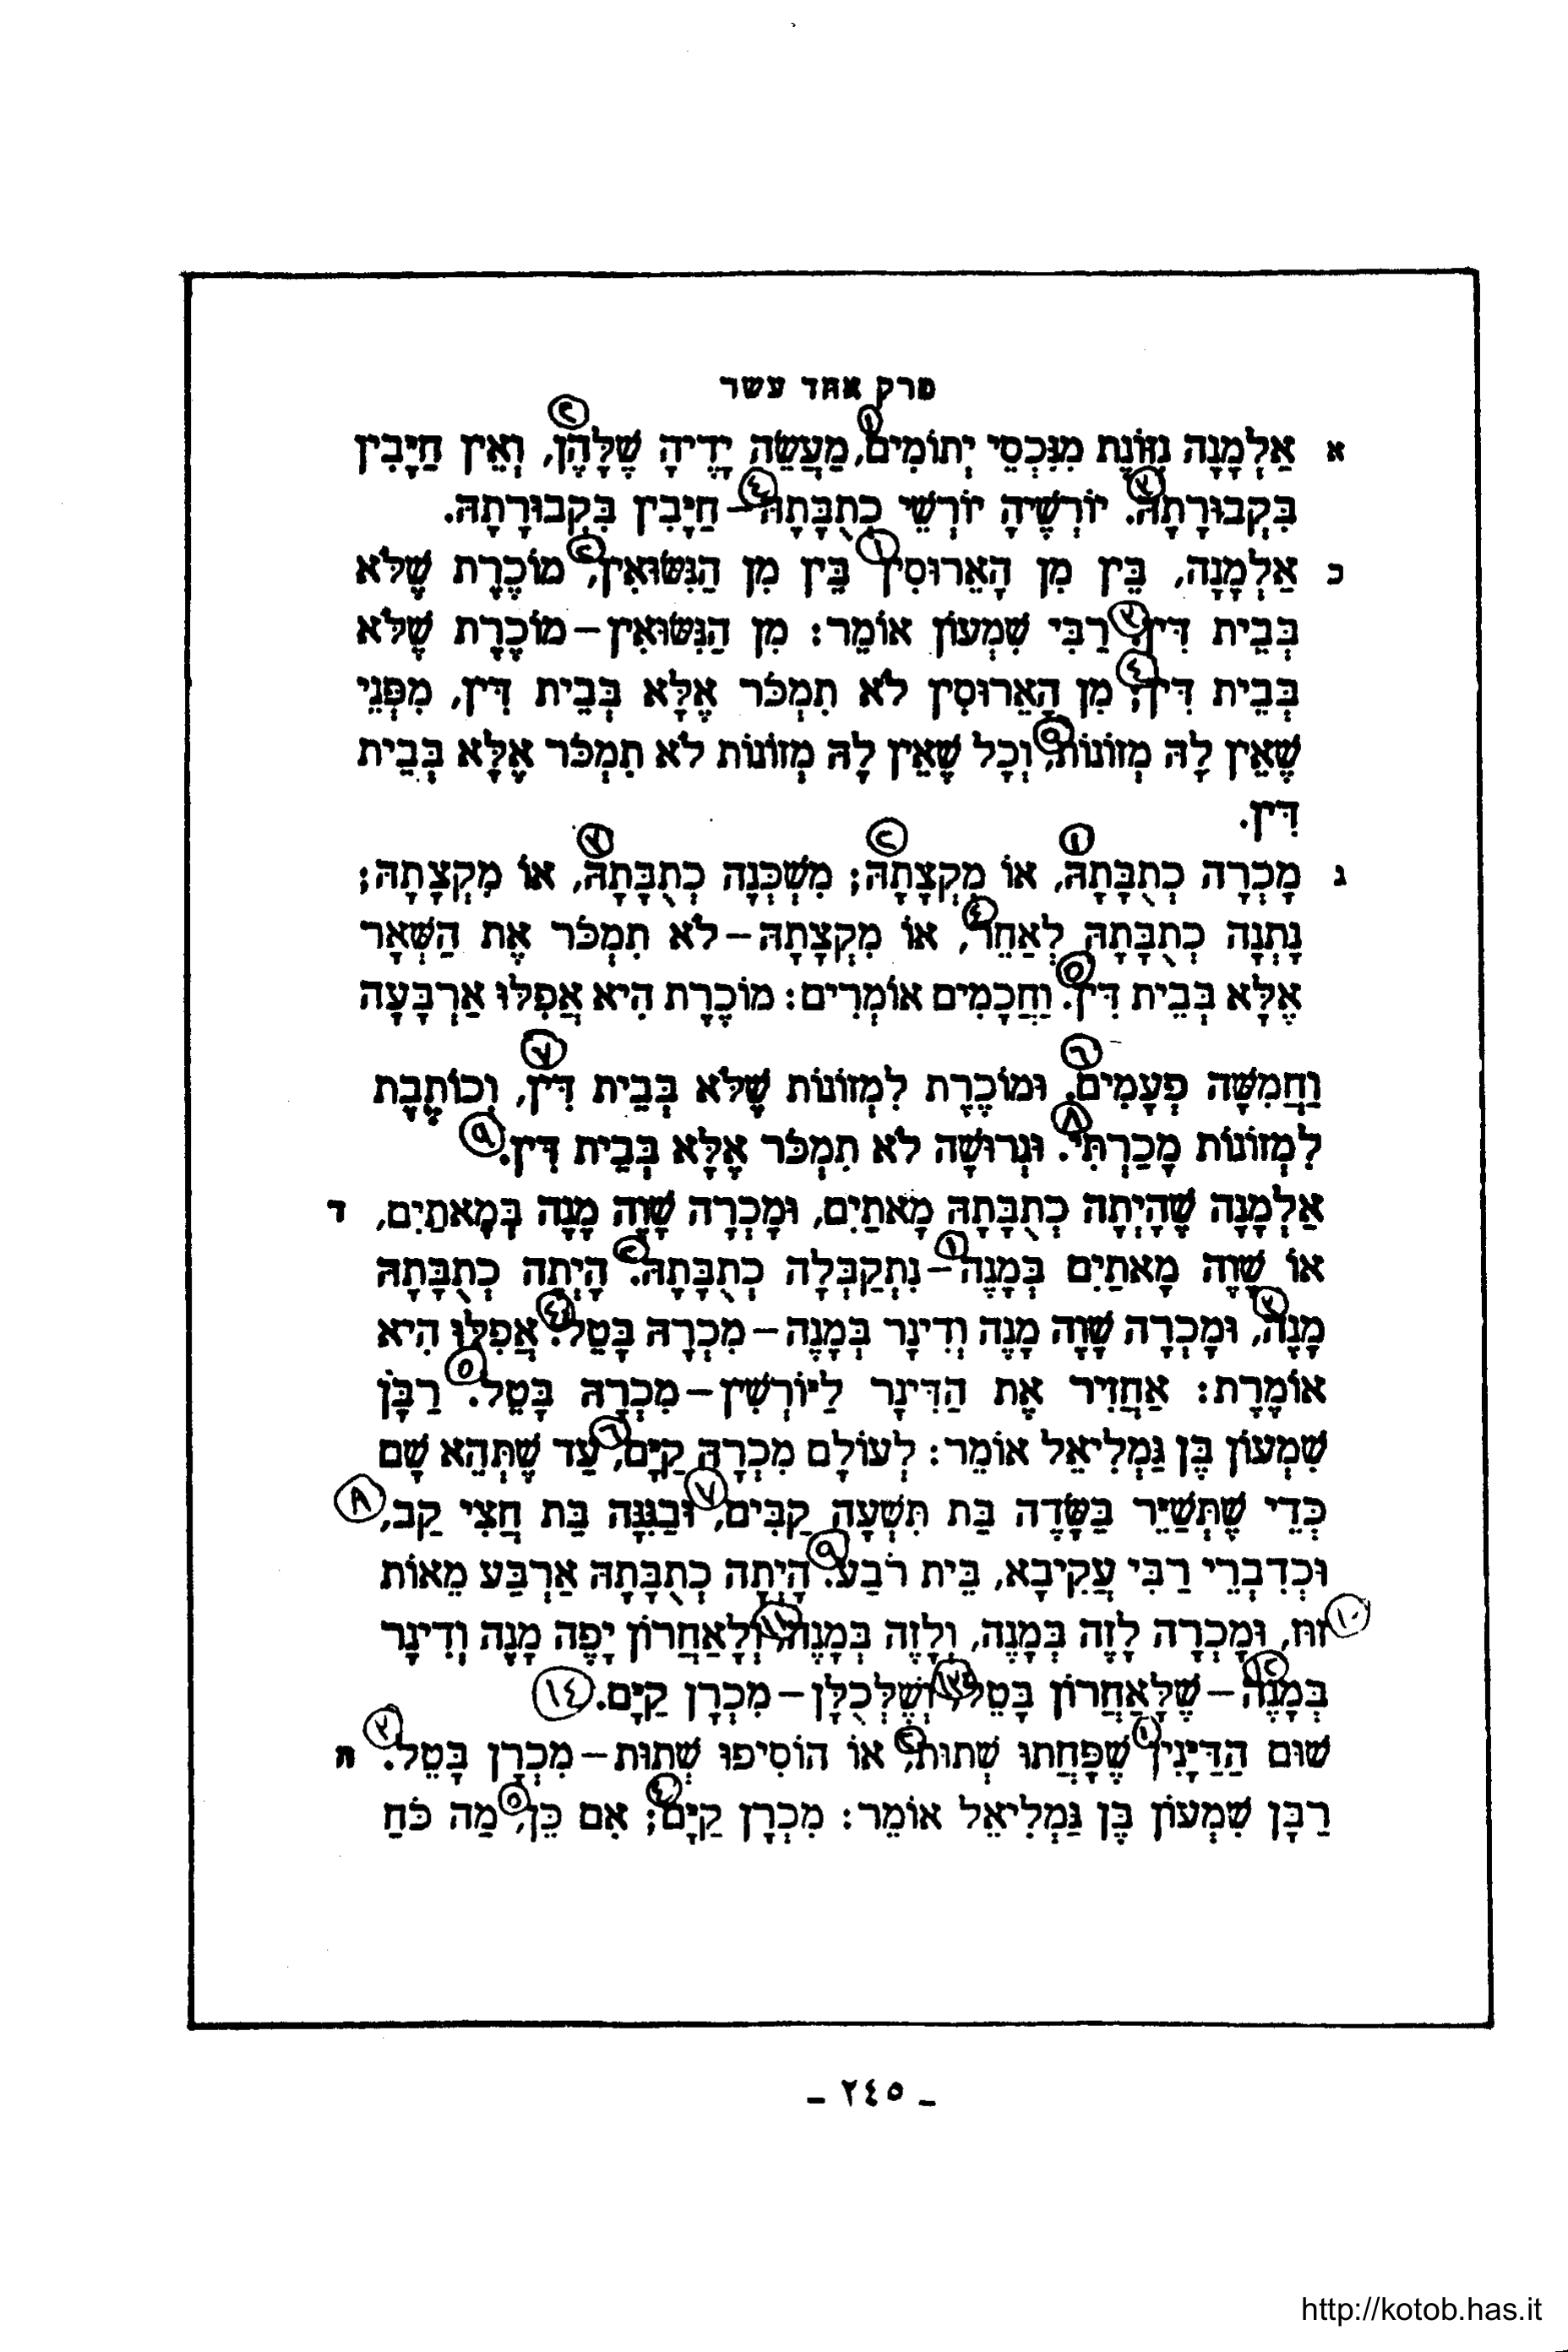 פרק אחד עשר
א אַלְמָנָה נִזּוֹנֶת מִנִּכְסֵי יְתוֹמִים, מַעֲשֵׂה יָדֶיהָ שֶׁלָּהֶן, וְאֵין חַיָּבִין
בִּקְבוּרָתָהּ. יוֹרְשֶׁיהָ יוֹרְשֵׁי כְתֻבָּתָהּ – חַיָּבִין בִּקְבוּרָתָהּ.
ב אַלְמָנָה, בֵּין מִן הָאֵרוּסִין בֵּין מִן הַנִּשּׂוּאִין, מוֹכֶרֶת שֶׁלֹּא
בְּבֵית דִּין. רַבִּי שִׁמְעוֹן אוֹמֵר: מִן הַנִּשּׂוּאִין – מוֹכֶרֶת שֶׁלֹּא
בְּבֵית דִּין; מִן הָאֵרוּסִין לֹא תִמְכֹּר אֶלָּא בְּבֵית דִּין, מִפְּנֵי
שֶׁאֵין לָהּ מְזוֹנוֹת, וְכָל שֶׁאֵין לָהּ מְזוֹנוֹת לֹא תִמְכֹּר אֶלָּא בְּבֵית
דִּין.
ג מָכְרָה כְתֻבָּתָהּ, אוֹ מִקְצָתָהּ; מִשְׁכְּנָה כְתֻבָּתָהּ, אוֹ מִקְצָתָהּ;
נָתְנָה כְתֻבָּתָהּ לְאַחֵר, אוֹ מִקְצָתָהּ – לֹא תִמְכֹּר אֶת הַשְּׁאָר
אֶלָּא בְּבֵית דִּין. וַחֲכָמִים אוֹמְרִים: מוֹכֶרֶת הִיא אֲפִלּוּ אַרְבָּעָה
וַחֲמִשָּׁה פְעָמִים. וּמוֹכֶרֶת לִמְזוֹנוֹת שֶׁלֹּא בְּבֵית דִּין, וְכוֹתֶבֶת
לִמְזוֹנוֹת מָכַרְתִּי. וּגְרוּשָׁה לֹא תִמְכֹּר אֶלָּא בְּבֵית דִּין.
ד אַלְמָנָה שֶׁהָיְתָה כְתֻבָּתָהּ מָאתַיִם, וּמָכְרָה שָׁוֶה מָנֶה בְּמָאתַיִם,
אוֹ שָׁוֶה מָאתַיִם בְּמָנֶה – נִתְקַבְּלָה כְתֻבָּתָהּ. הָיְתָה כְתֻבָּתָהּ
מָנֶה, וּמָכְרָה שָׁוֶה מָנֶה וְדִינָר בְּמָנֶה – מִכְרָהּ בָּטֵל. אֲפִלּוּ הִיא
אוֹמֶרֶת: אַחֲזִיר אֶת הַדִּינָר לַיּוֹרְשִׁין – מִכְרָהּ בָּטֵל. רַבָּן
שִׁמְעוֹן בֶּן גַּמְלִיאֵל אוֹמֵר: לְעוֹלָם מִכְרָהּ קַיָּם, עַד שֶׁתְּהֵא שָׁם
כְּדֵי שֶׁתְּשַׁיֵּר בַּשָּׂדֶה בַּת תִּשְׁעָה קַבִּים, וּבַגִּנָּה בַּת חֲצִי קַב,
וּכְדִבְרֵי רַבִּי עֲקִיבָא, בֵּית רֹבַע. הָיְתָה כְתֻבָּתָהּ אַרְבַּע מֵאוֹת
זוּז, וּמָכְרָה לָזֶה בְּמָנֶה, וְלָזֶה בְּמָנֶה, וְלָאַחֲרוֹן יָפֶה מָנֶה וְדִינָר
בְּמָנֶה – שֶׁלָּאַחֲרוֹן בָּטֵל, וְשֶׁלְּכֻלָּן – מִכְרָן קַיָּם.
ה שׁוּם הַדַּיָּנִין שֶׁפָּחֲתוּ שְׁתוּת, אוֹ הוֹסִיפוּ שְׁתוּת – מִכְרָן בָּטֵל.
רַבָּן שִׁמְעוֹן בֶּן גַּמְלִיאֵל אוֹמֵר: מִכְרָן קַיָּם; אִם כֵּן, מַה כֹּחַ
– ٢٤٥ –
http://kotob.has.it